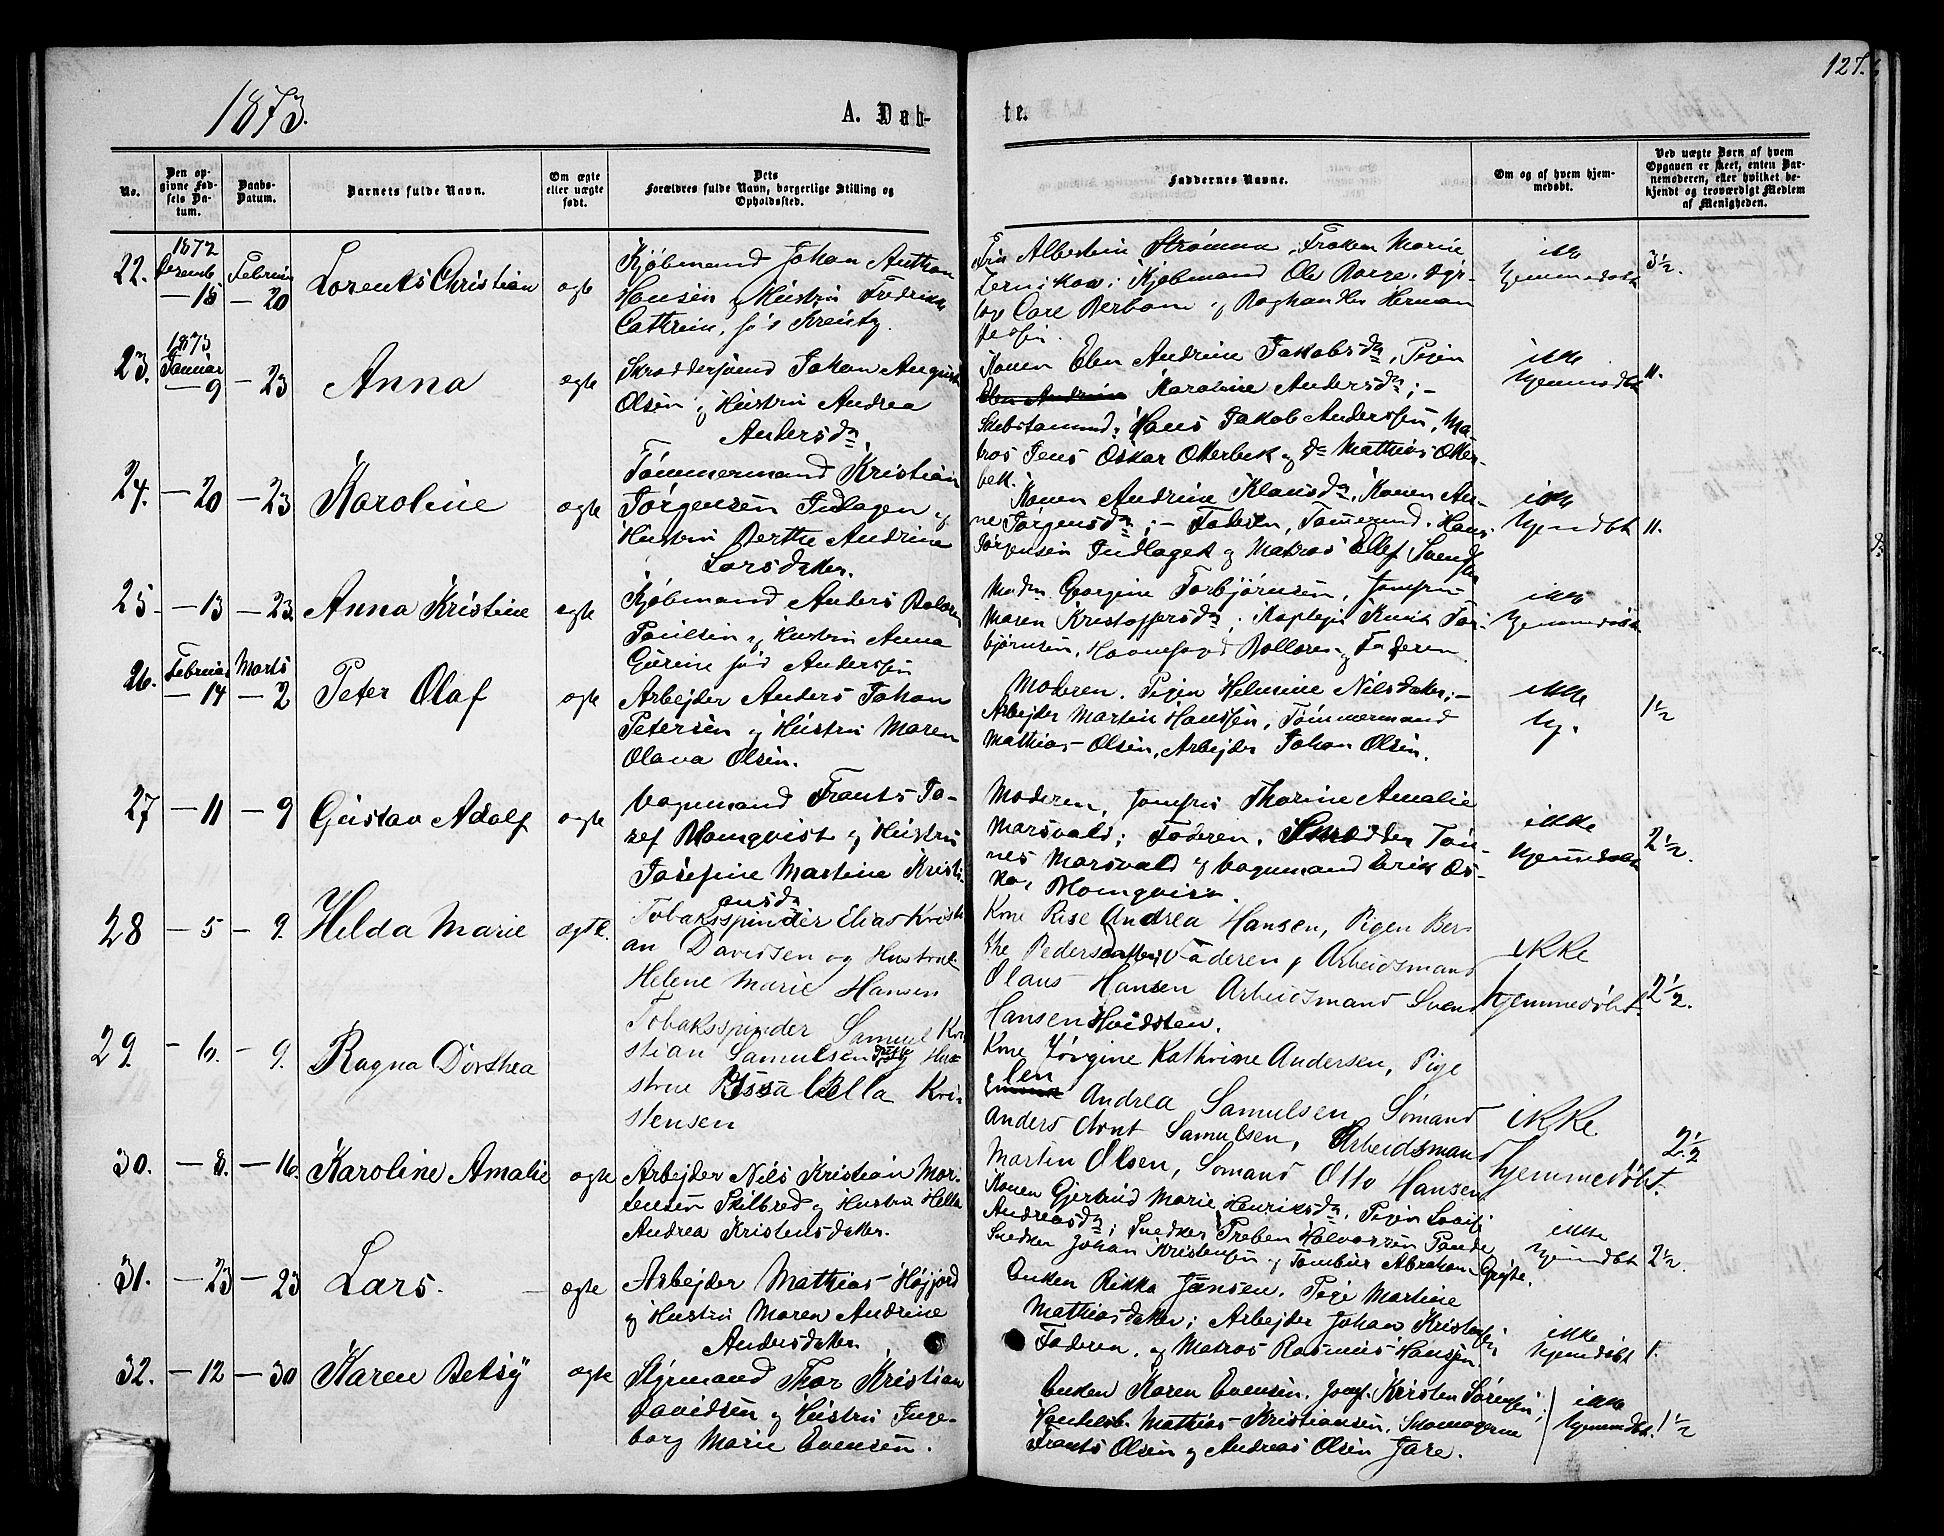 127.
1873.
A. Døb-
te.
No.
Den op-
givne Fød-
sels Da-
tum.
Daabs-
Datum.
Barnets fulde Navn.
Om ægte
eller uægte
født.
Dets
Forældres fulde Navn, borgerlige Stilling og
Opholdssted.
Faddernes Navne.
Om og af hvem hjem-
medøbt.
Ved uægte Børn af hvem
Opgaven er skeet, enten Bar-
nemoderen, eller hvilket be-
kjendt og troværdigt Medlem
af Menigheden.
22.
1872
Decemb
— 18
Februar
— 20
Lorents Christian
ægte
Kjøbmand Johan Anthon
Hansen og Hustru Fredrikke
Cathrine, fød
Albertine Strømme, Frøken Marie
Kjøbmand Ole
Boghandler Herman
ikke
hjemmedøbt
3½.
23.
1873
Januar
— 9
— 23
Anna
ægte
Skræddersvend Johan August
Olsen og Hustru Andrea
Andersda.
Konen Elen Andrine Jakobsda, Pigen
Elen Andrine Karoline Andersda; —
Hans Jakob Anderssen, Ma-
tros Jens Oskar Otterbek og do Mathias Otter-
bek.
ikke
hjemmedøbt
11.
24.
— 20
— 23
Karoline
ægte
Tømmermand Kristian
Jørgensen Indlagen og
Hustru Berthe Andrine
Larsdatter.
Konen Andrine Klausda, Konen An-
ne Jørgensda; — Faderen, Tømmermd. Hans
Jørgensen Indlaget og Matros Ellef Svendsen
ikke
hjemdøbt
11.
25
— 13
— 23
Anna Kristine
ægte
Kjøbmand Anders
Paulsen og Hustru Anna
Gurine fød Anderssen
Madm. Georgine Torbjørnsen, Jomfru
Maren Kristoffersda; Knut Tor-
bjørnsen, og Faderen
ikke
hjemmedøbt
26.
Februar
— 14
Marts
— 2
Peter Olaf
ægte
Arbejder Anders Johan
Petersen og Hustru Maren
Olava Olsen.
Moderen, Pigen Helmine Nilsdatter; —
Arbejder Martin Hanssen, Tømmermand
Mathias Olsen, Arbejder Johan Olsen.
ikke
hj.
1½
27
— 11
— 9
Gustav Adolf
ægte
Vognmand Frants Jo-
sef Blomqvist og Hustru
Josefine Martine Kristi-
ansda
Moderen, Jomfru Thorine Amalie
Marsvald; Faderen, Skrædder Tøn-
nes Marsvald og Vognmand Erik Os-
kar Blomqvist.
ikke
hjemmedøbt
2½.
28
— 5
— 9.
Helda Marie
ægte.
Tobaksspinder Elias Kristi
an Davidsen og Hustrue
Helene Marie Hansen
Kone Rise Andrea Hansen, Pigen Ber-
the Pedersdatter, Faderen, Arbeidsmand
Olaus Hansen Arbeidsmand Svend
Hansen Hvidsten.
ikke
hjemmedøbt.
2½.
29.
— 6.
— 9.
Ragna Dorthea
Tobaksspinder Samuel Kri
stian Samuelsen og Hu-
strue Issabella Kri
stensen
Kone Jørgine Kathrine Andersen, Pige
Andrea Samulsen, Sømand
Anders Arnt Samulsen, Arbeidsmand
Martin Olsen, Sømand Otto Hansen
ikke
hjemmedøbt.
2½
30.
— 8.
— 16.
Karoline Amalie
ægte
Arbejder Nils Kristian Mor-
tensen Skilbred og Hustru Hella
Andrea Kristensdatter.
Konen Gjertrud Marie Henriksda, Pigen Lovise
Andreasda; Snedker Preben Halvorsen
Snedker Johan Kristensen og Abraham
ikke
hjemdøbt
2½.
31.
— 23
— 23
Lars.
ægte
Arbejder Mathias Højjord
og Hustru Maren Andrine
Andersdatter
Enken Rikka Jensen, Pige Martine
Mathiasdatter; Arbejder Johan Kristensen
Faderen, og Matros Rasmus Hansen.
ikke
hjemdøbt
1.
32.
— 12
— 30
Karen Betsy
ægte
Styrmand Thor Kristian
Davidsen og Hustru Inge-
borg Marie Evensen.
Enken Karen Evensen, Jomf. Kirsten Sørensen;
Handelsb. Mathias Kristiansen, Skomagerne
Frants Olsen og Andreas Olsen Jare.
ikke
hjemmdøbt.
1½